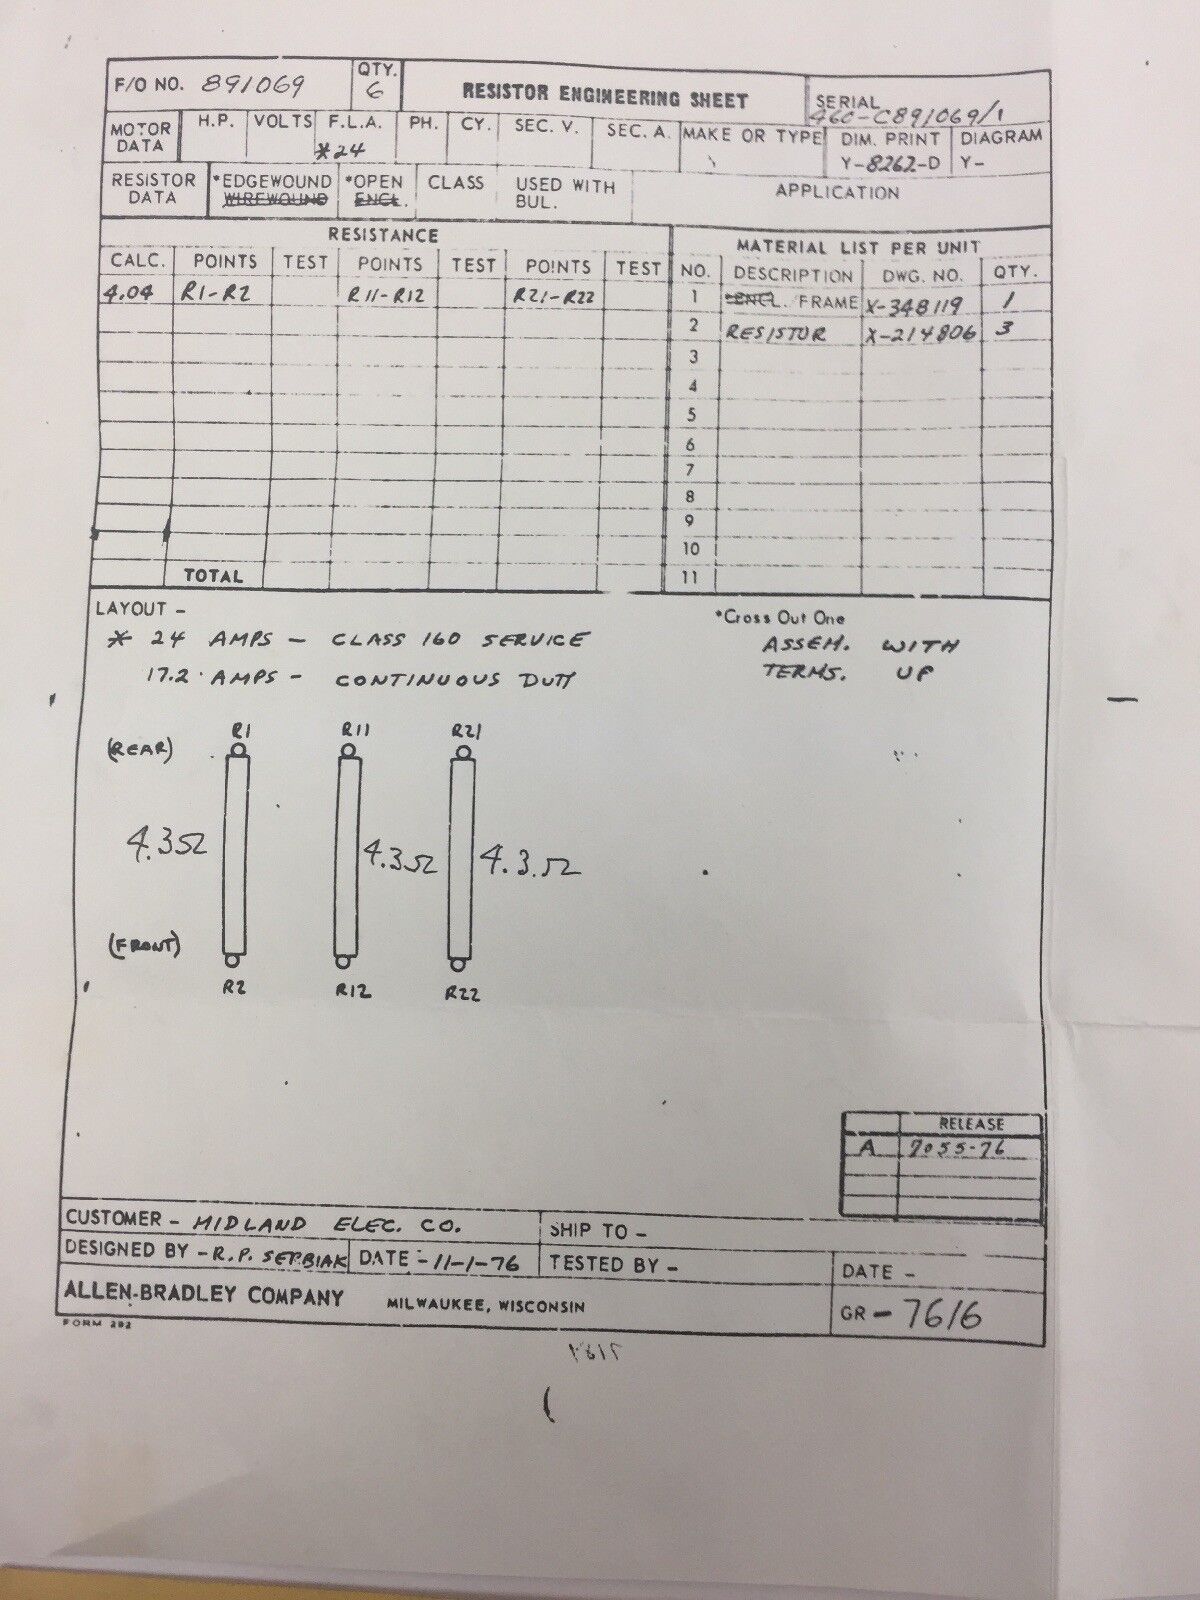 F/O NO. 891069 QTY. 6 RESISTOR ENGINEERING SHEET SERIAL 460-C891069/1
MOTOR DATA H.P. VOLTS F.L.A. *24 PH. CY. SEC. V. SEC. A. MAKE OR TYPE DIM. PRINT Y-8262-D DIAGRAM Y-
RESISTOR DATA *EDGEWOUND WIREWOUND *OPEN ENCL. CLASS USED WITH BUL. APPLICATION
RESISTANCE MATERIAL LIST PER UNIT
CALC. POINTS TEST POINTS TEST POINTS TEST NO. DESCRIPTION DWG. NO. QTY.
4.04 R1-R2 R11-R12 R21-R22 1 *ENCL. FRAME X-348119 1
2 RESISTOR X-214806 3
3
4
5
6
7
8
9
10
TOTAL 11
LAYOUT - *Cross Out One
* 24 AMPS - CLASS 160 SERVICE ASSEM. WITH
17.2 AMPS - CONTINUOUS DUTY TERMS. UP
R1 R11 R21
(REAR)
4.3Ω 4.3Ω 4.3Ω
(FRONT)
R2 R12 R22
RELEASE
A 7055-76
CUSTOMER - MIDLAND ELEC. CO. SHIP TO -
DESIGNED BY - R.P. SERBIAK DATE - 11-1-76 TESTED BY - DATE -
ALLEN-BRADLEY COMPANY MILWAUKEE, WISCONSIN GR - 7616
FORM 282